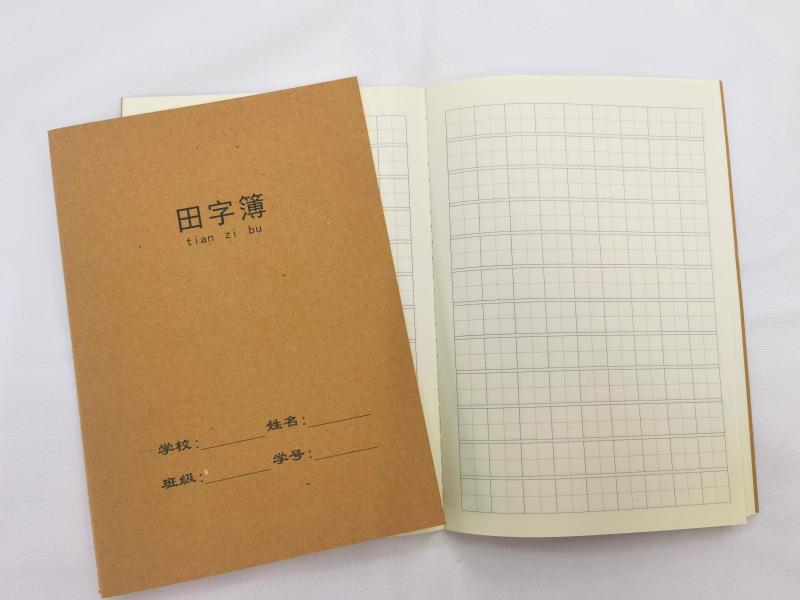 田字簿
tian zi bu
学校：________ 姓名：________
班级：________ 学号：________